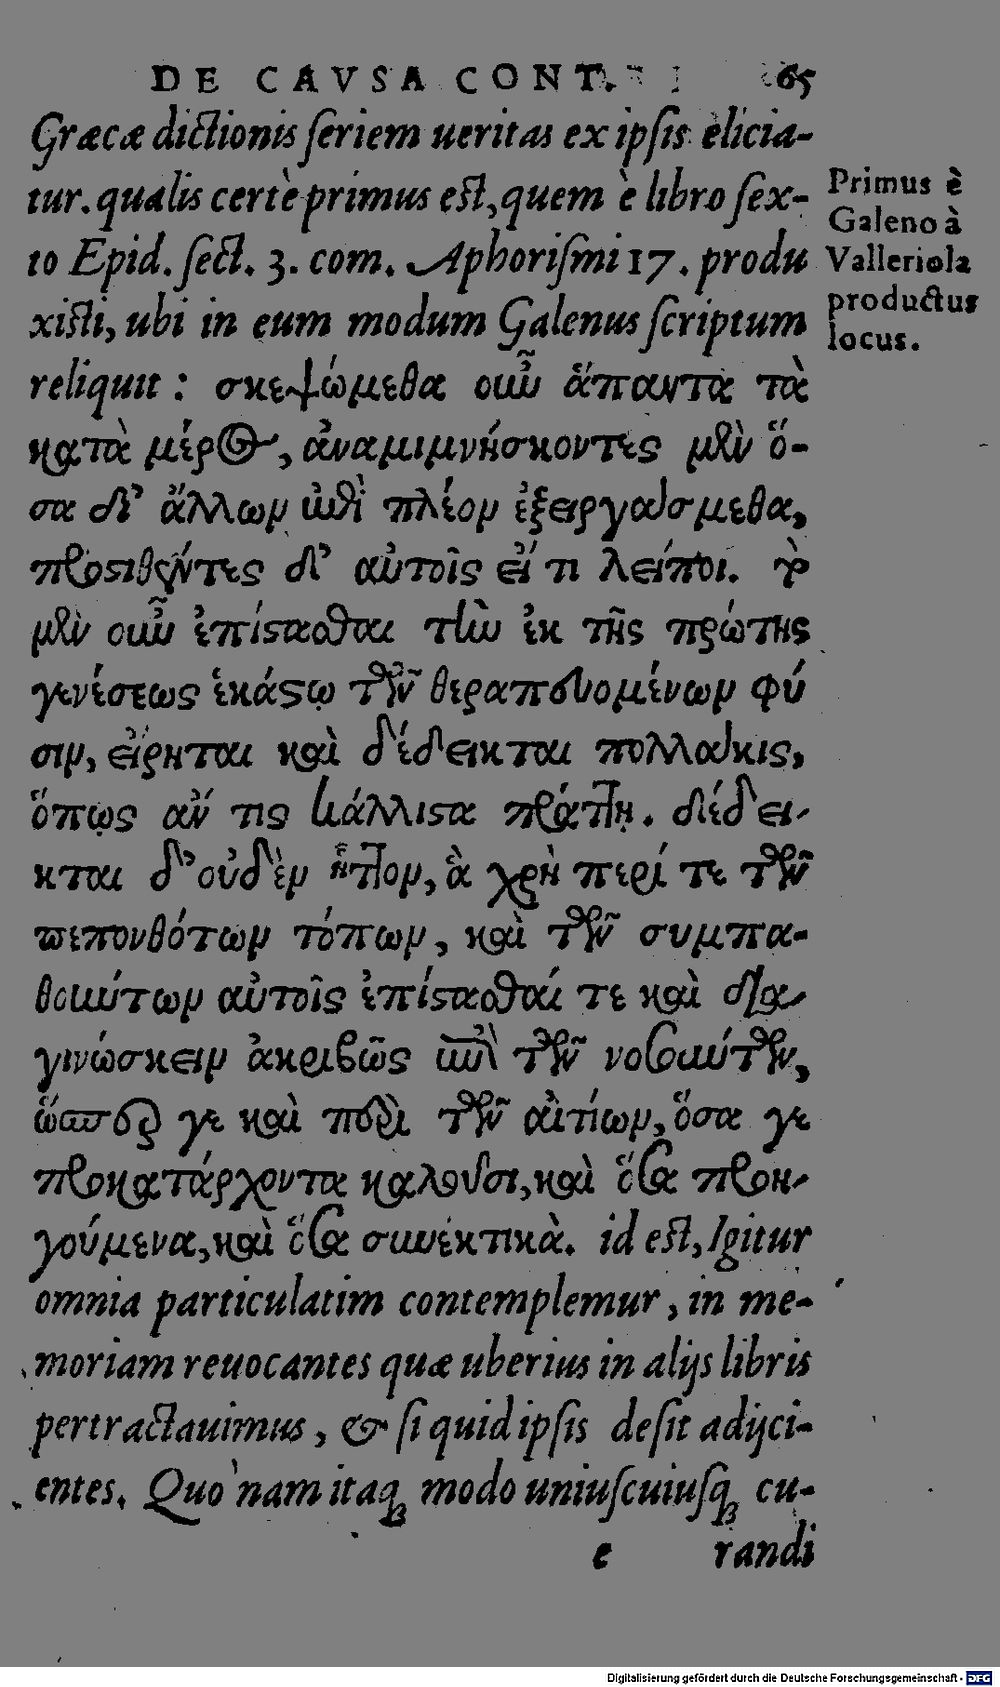 DE CAVSA CONT. 65
Græcæ dictionis ſeriem ueritas ex ipſis elicia-
tur. qualis certè primus eſt, quem è libro ſex-
to Epid. ſect. 3. com. Aphoriſmi 17. produ
xiſti, ubi in eum modum Galenus ſcriptum
reliquit: σκεψώμεθα οὖν ἅπαντα τὰ
κατὰ μέρος, ἀναμιμνήσκοντες μὲν ὅ-
σα δι’ ἄλλων ἐπὶ πλέον ἐξειργάσμεθα,
προσιθέντες δ’ αὐτοῖς εἴ τι λείποι. τὸ
μὲν οὖν ἐπίστασθαι τὴν ἐκ τῆς πρώτης
γενέσεως ἑκάστῳ τῶν θεραπευομένων φύ
σιν, εἴρηται καὶ δέδεικται πολλάκις,
ὅπως ἄν τις κάλλιστα πράττῃ. δέδει-
κται δ’ οὐδὲν ἧττον, ἃ χρὴ περί τε τῶν
πεπονθότων τόπων, καὶ τῶν συμπα-
θούντων αὐτοῖς ἐπίστασθαί τε καὶ δια-
γινώσκειν ἀκριβῶς ἐπὶ τῶν νοσούντων,
ὥσπερ γε καὶ περὶ τῶν αἰτίων, ὅσα γε
προκατάρχοντα καλοῦσι, καὶ ὅσα προη-
γούμενα, καὶ ὅσα συνεκτικὰ. id eſt, Igitur
omnia particulatim contemplemur, in me-
moriam reuocantes quæ uberius in alijs libris
pertractauimus, & ſi quid ipſis deſit adijci-
entes. Quo nam itaq; modo uniuſcuiuſq; cu-
e randi
Primus è
Galeno à
Valleriola
productus
locus.
Digitalisierung gefördert durch die Deutsche Forschungsgemeinschaft - DFG